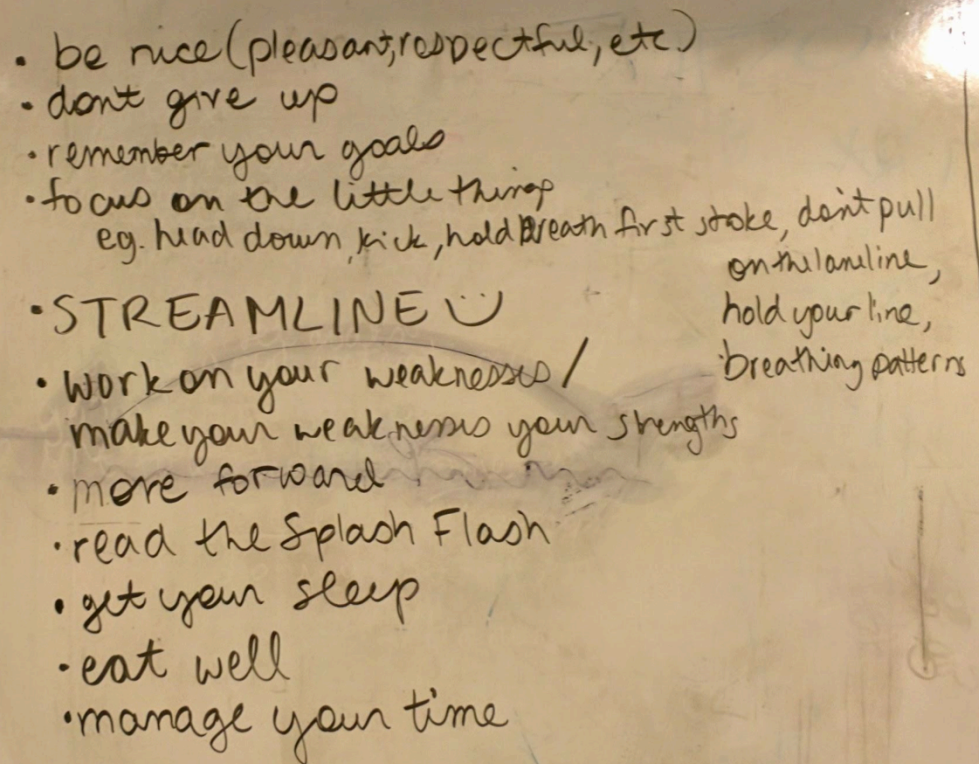 • be nice (pleasant, respectful, etc)
• don't give up
• remember your goals
• focus on the little things
eg. head down, kick, hold breath first stroke, don't pull
on the laneline,
hold your line,
breathing patterns
• STREAMLINE
• work on your weaknesses /
make your weaknesses your strengths
• more forward
• read the Splash Flash
• get your sleep
• eat well
• manage your time